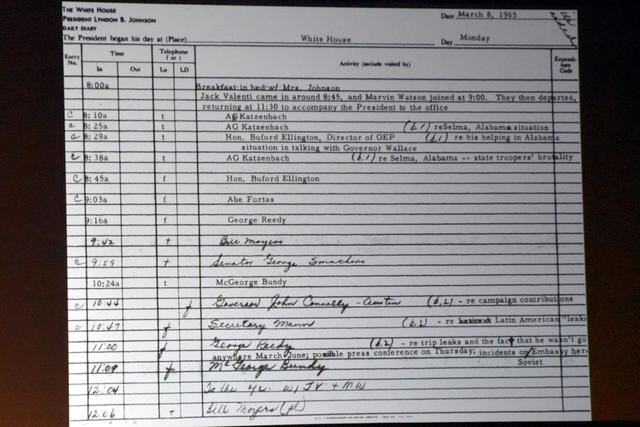 THE WHITE HOUSE Date March 8, 1965
PRESIDENT LYNDON B. JOHNSON
DAILY DIARY
The President began his day at (Place) White House Day Monday
Entry No. Time Telephone f or t Activity (include visited by) Expenditure Code
In Out Lo LD
8:00a Breakfast in bed w/ Mrs. Johnson
Jack Valenti came in around 8:45, and Marvin Watson joined at 9:00. They then departed,
returning at 11:30 to accompany the President to the office
C 8:10a t AG Katzenbach
c 8:25a t AG Katzenbach (b.1) re Selma, Alabama situation
c 8:29a t Hon. Buford Ellington, Director of OEP (b.1) re his helping in Alabama
situation in talking with Governor Wallace
c 8:38a t AG Katzenbach (b.1) re Selma, Alabama -- state troopers' brutality
C 8:45a f Hon. Buford Ellington
C 9:03a f Abe Fortas
9:16a f George Reedy
9:42 t Bill Moyers
c 9:55 t Senator George Smathers
10:24a t McGeorge Bundy
c 10:44 f Governor John Connally - Austin (b.2) - re campaign contributions
c 10:47 f Secretary Mann (b.2) - re Latin American "leaks
11:00 f George Reedy (b.2) - re trip leaks and the fact that he wasn't go
anywhere March-June; possible press conference on Thursday; incidents on Embassy here
11:09 f McGeorge Bundy Soviet
12:04 To the w/ JV + MW
12:06 t Bill Moyers (pl)